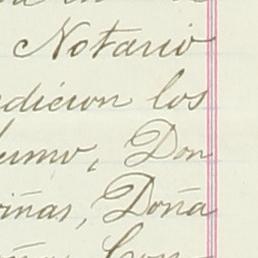 Notario
edicion los
umo, Don
iñas, Doña